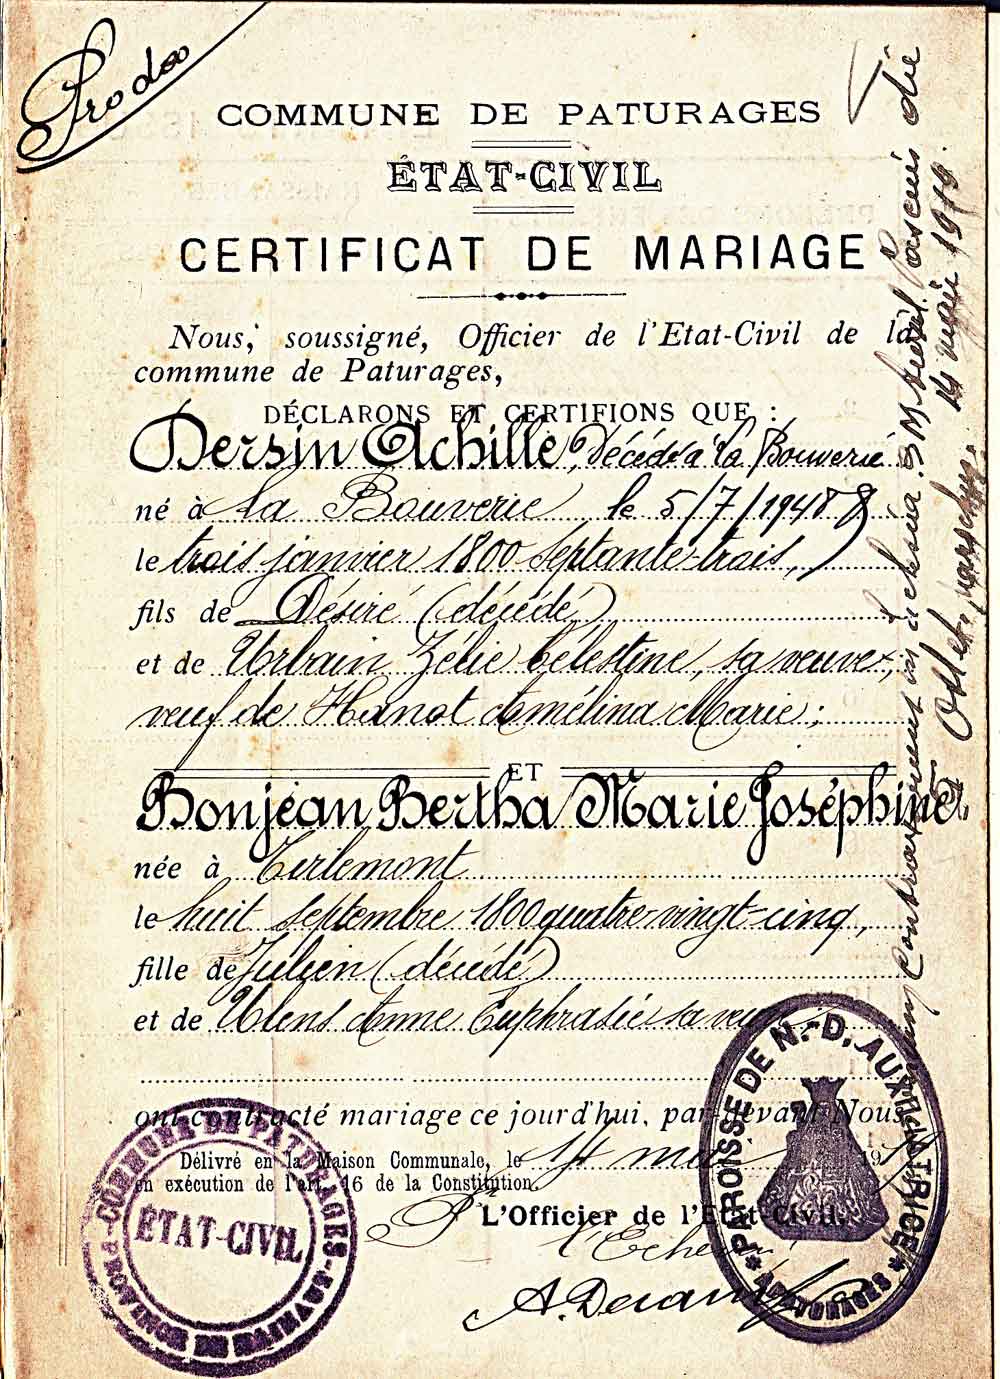 Pro deo
COMMUNE DE PATURAGES
ÉTAT-CIVIL
CERTIFICAT DE MARIAGE
Nous, soussigné, Officier de l'Etat-Civil de la
commune de Paturages,
DÉCLARONS ET CERTIFIONS QUE :
Dersin Achille, Décédé à La Bouverie
né à La Bouverie le 5/7/1948
le trois janvier 1800 septante-trois,
fils de Désiré (décédé)
et de Urbain Zélie Célestine, sa veuve,
veuf de Hanot Amélina Marie;
ET
Bonjean Bertha Marie Joséphine
née à Tirlemont
le huit septembre 1800 quatre-vingt-cinq,
fille de Julien (décédé)
et de Ulens Anne Euphrasie sa veuve
ont contracté mariage ce jourd'hui, par-devant Nous
Délivré en la Maison Communale, le 14 mai 19
en exécution de l'art. 16 de la Constitution.
L'Officier de l'Etat-Civil,
l'Echevin
COMMUNE DE PATURAGES
ÉTAT-CIVIL
PROVINCE DE HAINAUT
PAROISSE DE N.-D. AUXILIATRICE
PATURAGES
14 mai 1919